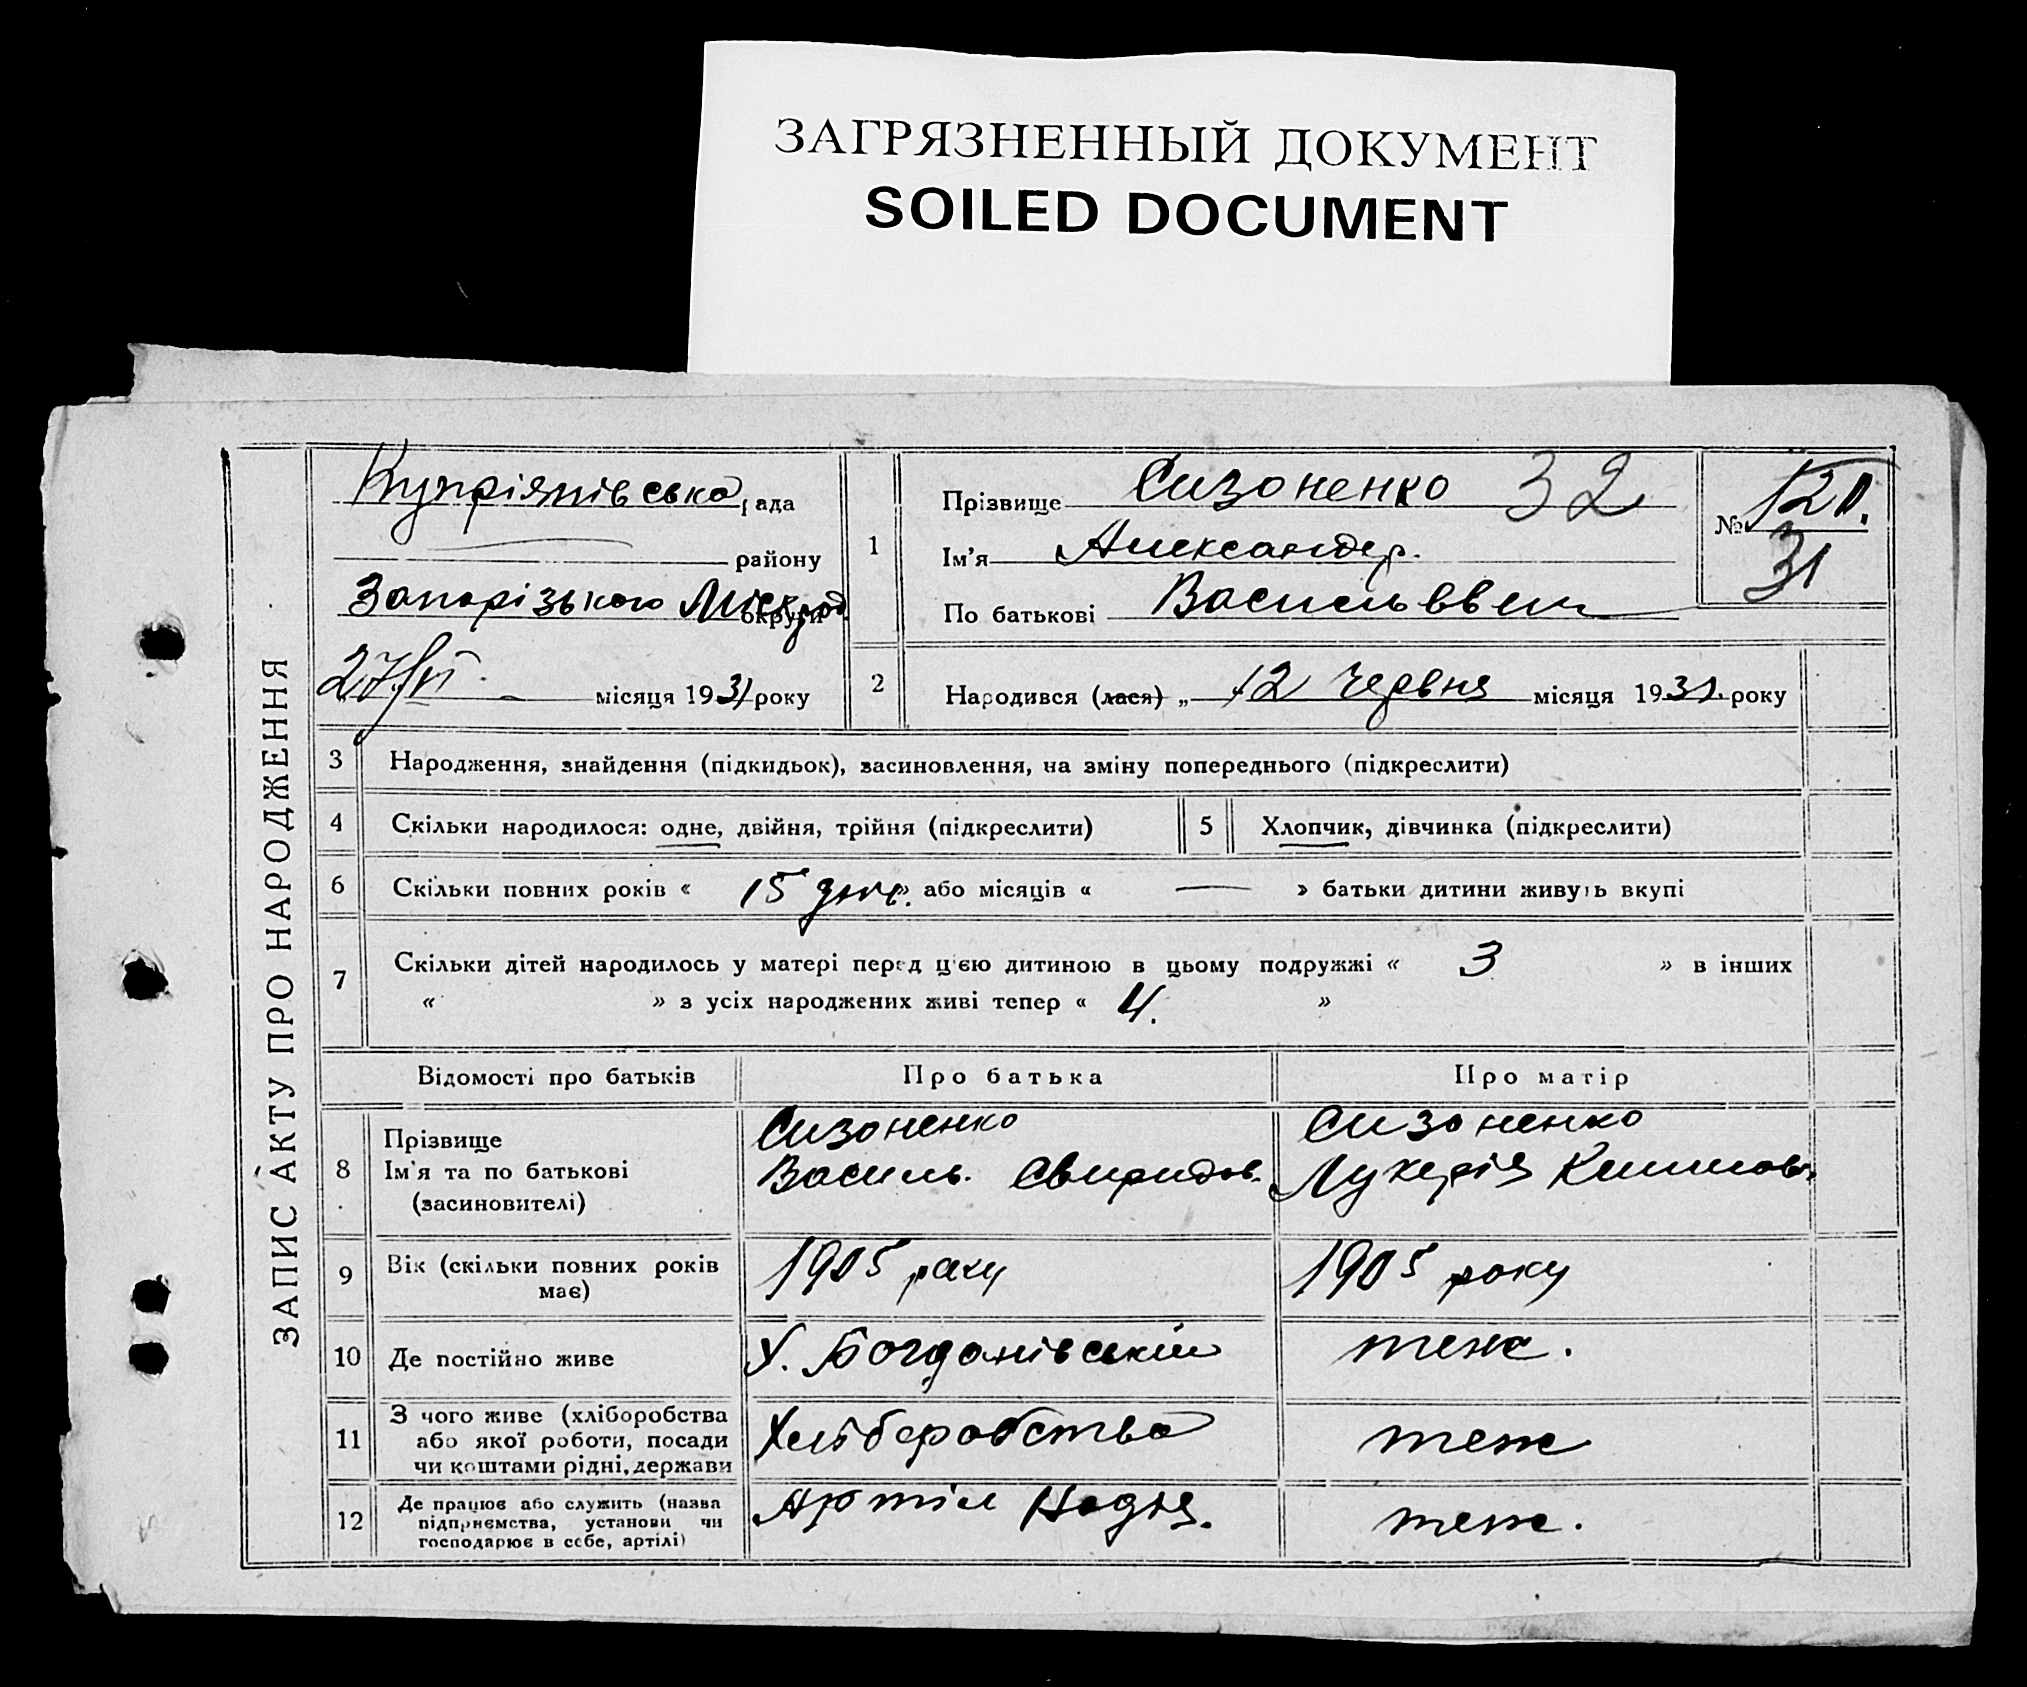 ЗАГРЯЗНЕННЫЙ ДОКУМЕНТ
SOILED DOCUMENT
ЗАПИС АКТУ ПРО НАРОДЖЕННЯ
Купріянівська рада
району
Запорізького Міськрад. округи
27/VI місяця 1931 року
1
Прізвище Сизоненко 32
Ім'я Александр.
По батькові Васильввич
№ 120.
31
2 Народився (лася) „ 12 червня місяця 1931. року
3 Народження, знайдення (підкидьок), засиновлення, на зміну попереднього (підкреслити)
4 Скільки народилося: одне, двійня, трійня (підкреслити) 5 Хлопчик, дівчинка (підкреслити)
6 Скільки повних років « 15 » або місяців « — » батьки дитини живуть вкупі
7 Скільки дітей народилось у матері перед цією дитиною в цьому подружжі « 3 » в інших
« » з усіх народжених живі тепер « 4. »
Відомості про батьків Про батька Про матір
8 Прізвище Ім'я та по батькові (засиновителі)
Сизоненко
Василь. Свиридов.
Сизоненко
Лукерія Климов.
9 Вік (скільки повних років має) 1905 року 1905 року
10 Де постійно живе Х. Богданівський теж.
11 З чого живе (хліборобства або якої роботи, посади чи коштами рідні, держави Хліборобства теж
12 Де працює або служить (назва підприємства, установи чи господарює в себе, артілі) Артіл Надія. теж.